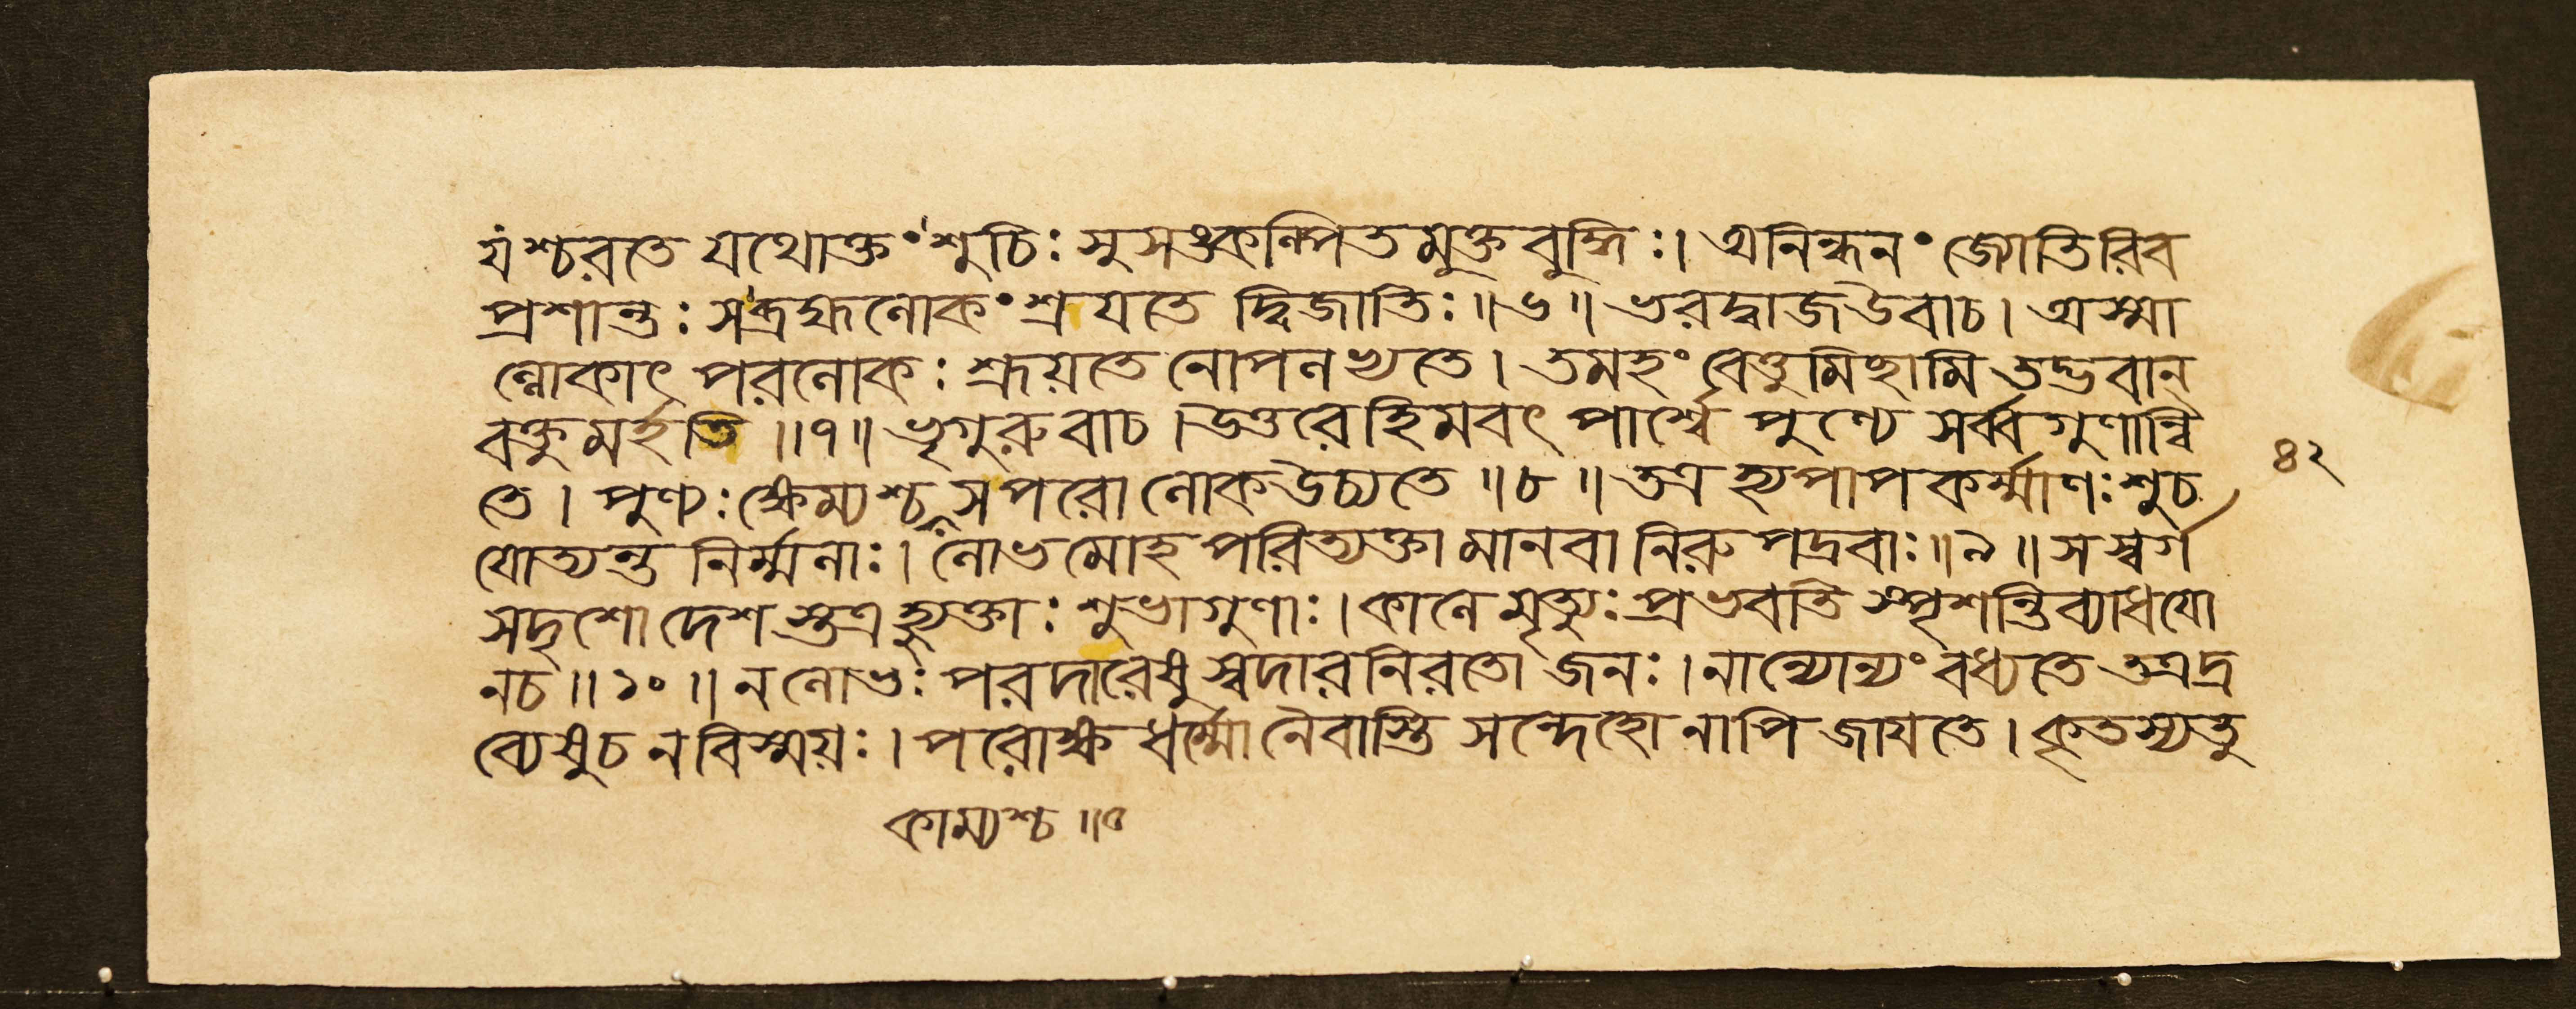 যংশ্চরতে যথোক্তং শুচিঃ সুসঙ্কল্পিতমুক্তবুদ্ধিঃ। অনিন্ধনং জ্যোতিরিব
প্রশান্তঃ সব্রহ্মলোকং শ্রয়তে দ্বিজাতিঃ॥৬॥ ভরদ্বাজউবাচ। অস্মা
ল্লোকাৎ পরলোকঃ শ্রূয়তে নোপলভ্যতে। তমহং বেত্তুমিছামি তদ্ভবান্
বক্তুমর্হতি॥৭॥ ভৃগুরুবাচ। উত্তরে হিমবৎ পার্শ্বে পুণ্যে সর্ব্বগুণান্বি
তে। পুণ্যঃ ক্ষেম্যশ্চ সপরো লোকউচ্যতে॥৮॥ তত্র হ্যপাপকর্ম্মাণঃ শুচ
যোত্যন্ত নির্ম্মলাঃ। লোভমোহ পরিত্যক্তা মানবা নিরুপদ্রবাঃ॥৯॥ সস্বর্গ
সদৃশো দেশ স্তত্র হ্যুক্তাঃ শুভাগুণাঃ। কালে মৃত্যুঃ প্রভবতি স্পৃশন্তি ব্যাধযো
নচ॥১০॥ ন লোভঃ পরদারেষু স্বদারনিরতো জনঃ। নান্যোন্যং বধ্যতে তত্রদ্র
ব্যেষুচ নবিস্ময়ঃ। পরোক্ষ ধর্ম্মো নৈবাস্তি সন্দেহো নাপি জাযতে। কৃতস্যতু
৪২
কাম্যশ্চ॥৫